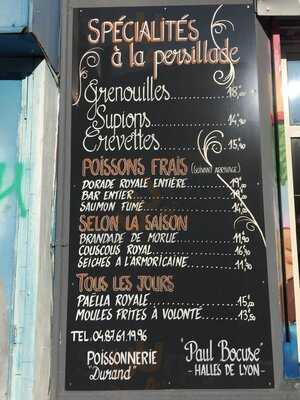 SPÉCIALITÉS
à la persillade
Grenouilles..............18,00
Supions..............14,90
Crevettes..............15,90
POISSONS FRAIS (SUIVANT ARRIVAGE)
DORADE ROYALE ENTIÈRE
BAR ENTIER
SAUMON FUMÉ
SELON LA SAISON
BRANDADE DE MORUE
COUSCOUS ROYAL
SEICHES A L'ARMORICAINE
TOUS LES JOURS
PAËLLA ROYALE
MOULES FRITES À VOLONTÉ
TEL.04.87.61.19.96
POISSONNERIE
"Durand"
"Paul Bocuse"
- HALLES DE LYON -